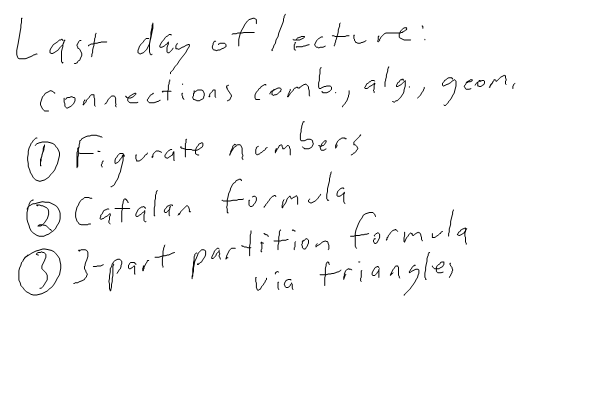 Last day of lecture:
connections comb., alg., geom.
① Figurate numbers
② Catalan formula
③ 3-part partition formula
via triangles